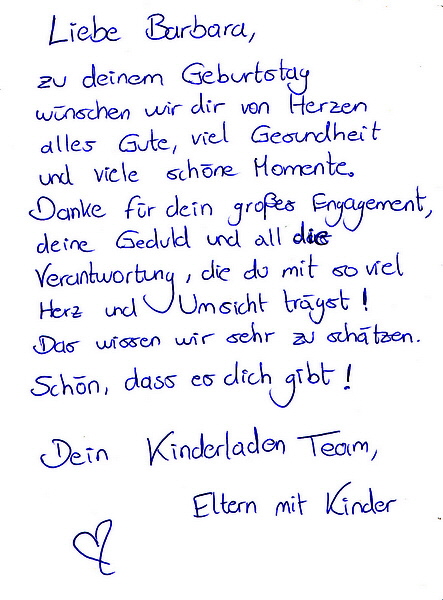 Liebe Barbara,
zu deinem Geburtstag
wünschen wir dir von Herzen
alles Gute, viel Gesundheit
und viele schöne Momente.
Danke für dein großes Engagement,
deine Geduld und all die
Verantwortung, die du mit so viel
Herz und Umsicht trägst!
Das wissen wir sehr zu schätzen.
Schön, dass es dich gibt!
Dein Kinderladen Team,
Eltern mit Kinder